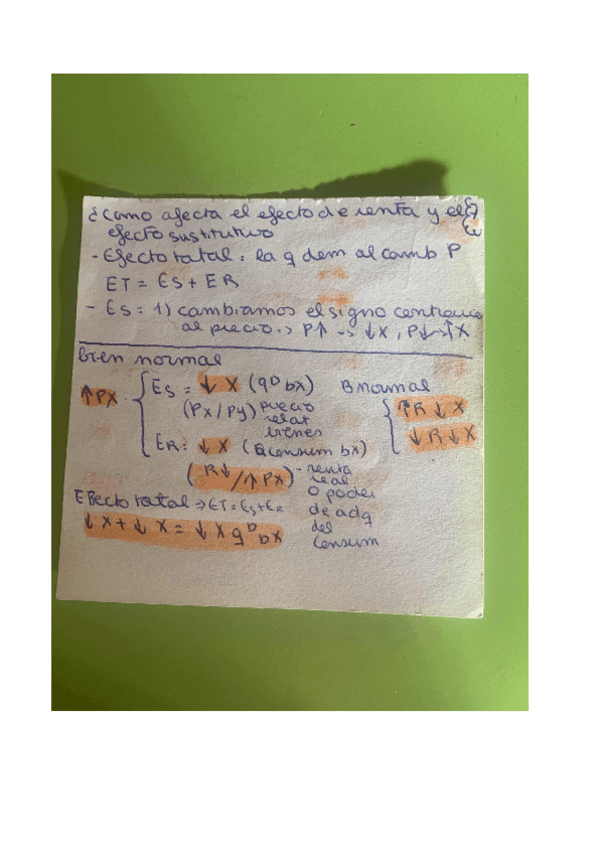 ¿Como afecta el efecto de renta y el
efecto sustitutivo
- Efecto total: la q dem al camb P
ET = ES + ER
- ES = 1) cambiamos el signo
al precio => P↑ -> ↓X, P↓->↑X
bien normal
↑PX
ES = ↓ X (qD bx)
(PX/PY) precio
relat
bienes
ER: ↓ X (consum bx)
(R↓/↑PX) - renta
real
o poder
de adq
del
consum
B normal
↑R ↓ X
↓R ↓ X
Efecto total => ET = ES + ER
↓ X + ↓ X = ↓ X qD bx